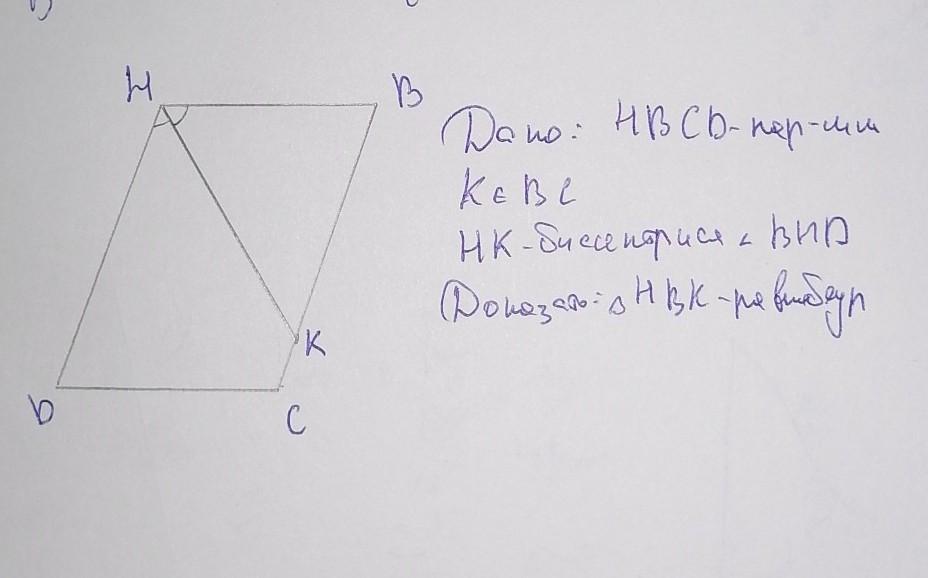 H
B
Дано: HBCD-пар-мм
K ∈ BC
HK-биссектриса ∠ BHD
Доказать: △ HBK-равнобедр
K
D
C